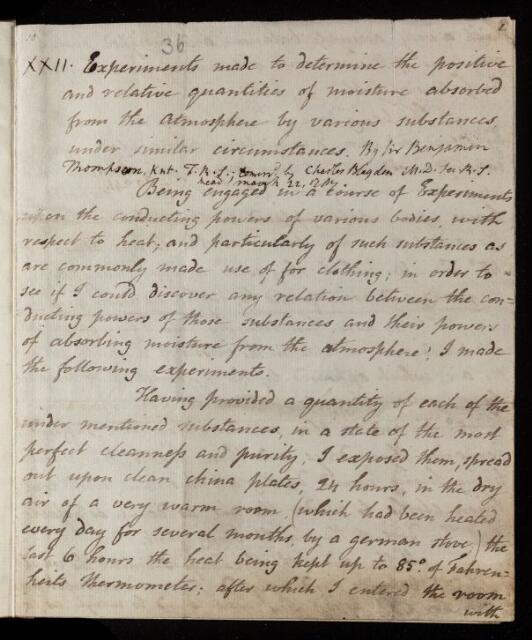 36
XXII. Experiments made to determine the positive
and relative quantities of moisture absorbed
from the atmosphere by various substances,
under similar circumstances. By Sir Benjamin
Thompson, Knt. F.R.S.; by Charles Blagden M.D. Sec. R.S.
read March 22, 1787
Being engaged in a course of Experiments
upon the conducting powers of various bodies with
respect to heat; and particularly of such substances as
are commonly made use of for clothing; in order to
see if I could discover any relation between the con-
ducting powers of those substances and their powers
of absorbing moisture from the atmosphere, I made
the following experiments.
Having provided a quantity of each of the
under mentioned substances, in a state of the most
perfect cleanness and purity, I exposed them, spread
out upon clean china plates, 24 hours, in the dry
air of a very warm room (which had been heated
every day for several months by a german stove) the
last 6 hours the heat being kept up to 85° of Fahren-
heits Thermometer; after which I entered the room
with